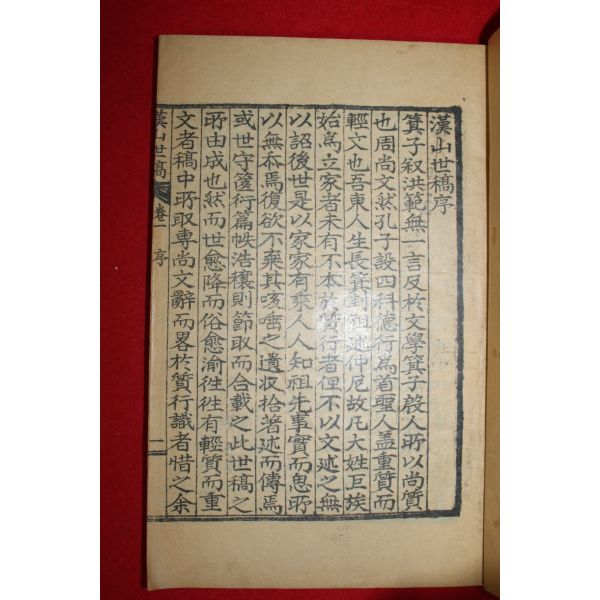 漢山世稿序
箕子叙洪範無一言及於文學箕子殷人所以尚質
也周尚文然孔子設四科德行為首聖人盖重質而
輕文也吾東人生長箕封祖述仲尼故凡大姓巨族
始為立家者未有不本於質行者但不以文述之無
以詔後世是以家家有乘人人知祖先事實而思所
以無忝焉復欲不棄其咳唾之遺収拾著述而傳焉
或世守篋衍篇帙浩穰則節取而合載之此世稿之
所由成也然而世愈降而俗愈渝徃徃有輕質而重
文者稿中所取專尚文辭而畧於質行識者惜之余
漢山世稿 卷一 序 一